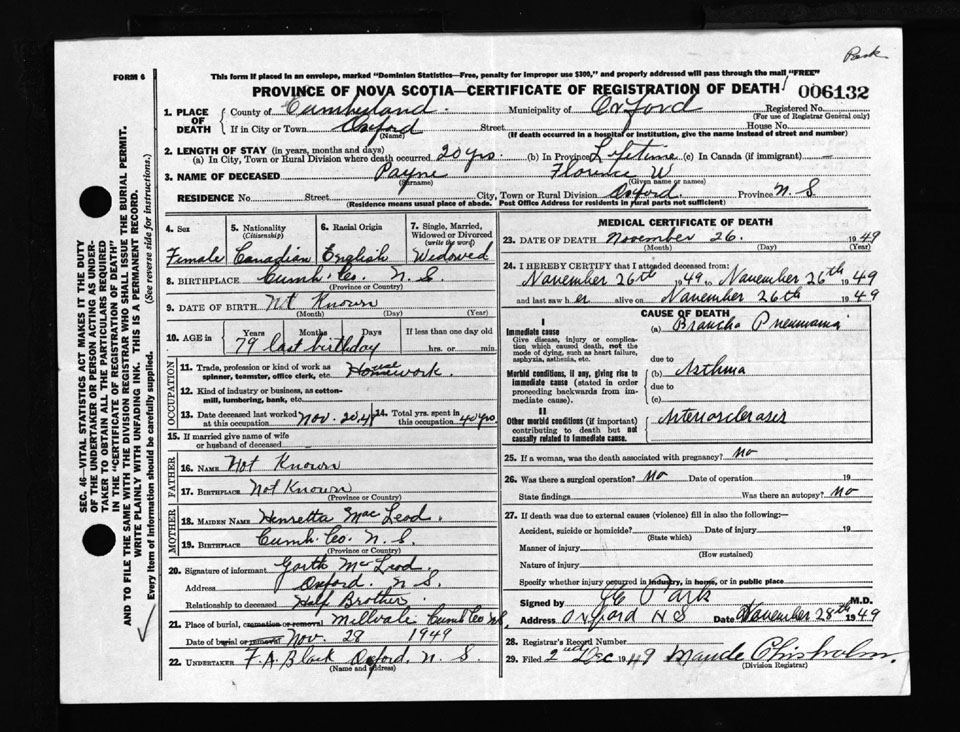 Park
FORM 6
This form if placed in an envelope, marked "Dominion Statistics—Free, penalty for improper use $300," and properly addressed will pass through the mail "FREE"
PROVINCE OF NOVA SCOTIA—CERTIFICATE OF REGISTRATION OF DEATH 006132
1. PLACE OF DEATH County of Cumberland Municipality of Oxford Registered No.
(For use of Registrar General only)
If in City or Town Oxford Street House No.
(Name) (If death occurred in a hospital or institution, give the name instead of street and number)
2. LENGTH OF STAY (in years, months and days)
(a) In City, Town or Rural Division where death occurred 20 yrs. (b) In Province Lifetime (c) In Canada (if immigrant) —
3. NAME OF DECEASED Payne Florence W
(Surname) (Given name or names)
RESIDENCE No. Street City, Town or Rural Division Oxford. Province N. S
(Residence means usual place of abode. Post Office Address for residents in rural parts not sufficient)
4. Sex Female
5. Nationality (Citizenship) Canadian
6. Racial Origin English
7. Single, Married, Widowed or Divorced (write the word) Widowed
8. BIRTHPLACE Cumb. Co. N. S.
(Province or Country)
9. DATE OF BIRTH Not Known
(Month) (Day) (Year)
10. AGE in Years Months Days If less than one day old
79 last birthday hrs. or min.
OCCUPATION
11. Trade, profession or kind of work as spinner, teamster, office clerk, etc. Housework.
12. Kind of industry or business, as cotton-mill, lumbering, bank, etc.
13. Date deceased last worked at this occupation Nov. 20,4
14. Total yrs. spent in this occupation 40 yrs.
15. If married give name of wife or husband of deceased
FATHER
16. NAME Not Known
17. BIRTHPLACE Not Known
(Province or Country)
MOTHER
18. MAIDEN NAME Henretta Mac Leod.
19. BIRTHPLACE Cumb. Co. N. S.
(Province or Country)
20. Signature of informant Garth McLeod.
Address Oxford. N S.
Relationship to deceased Half Brother.
21. Place of burial, cremation or removal Millvale Cumb Co NS.
Date of burial or removal Nov. 28 1949
22. UNDERTAKER F. A. Black Oxford, N. S.
(Name and address)
MEDICAL CERTIFICATE OF DEATH
23. DATE OF DEATH November 26. 1949
(Month) (Day) (Year)
24. I HEREBY CERTIFY that I attended deceased from:
November 26th 1949 to November 26th 1949
and last saw her alive on November 26th 1949
CAUSE OF DEATH
I
Immediate cause (a) Broncho Pneumonia
Give disease, injury or complication which caused death, not the mode of dying, such as heart failure, asphyxia, asthenia, etc.
due to
Morbid conditions, if any, giving rise to immediate cause (stated in order proceeding backwards from immediate cause). (b) Asthma
due to
(c)
II
Other morbid conditions (if important) contributing to death but not causally related to immediate cause. Arteriosclerosis
25. If a woman, was the death associated with pregnancy? No
26. Was there a surgical operation? No Date of operation 19
State findings Was there an autopsy? No
27. If death was due to external causes (violence) fill in also the following:—
Accident, suicide or homicide? Date of injury 19
(State which)
Manner of injury
(How sustained)
Nature of injury
Specify whether injury occurred in industry, in home, or in public place
Signed by Park M.D.
Address Oxford NS Date November 28th 1949
28. Registrar's Record Number
29. Filed 2nd Dec 1949 Maude Chisholm.
(Division Registrar)
SEC. 46—VITAL STATISTICS ACT MAKES IT THE DUTY
OF THE UNDERTAKER OR PERSON ACTING AS UNDER-
TAKER TO OBTAIN ALL THE PARTICULARS REQUIRED
IN THE "CERTIFICATE OF REGISTRATION OF DEATH"
AND TO FILE THE SAME WITH THE DIVISION REGISTRAR WHO SHALL ISSUE THE BURIAL PERMIT.
WRITE PLAINLY WITH UNFADING INK. THIS IS A PERMANENT RECORD.
Every item of information should be carefully supplied. (See reverse side for instructions.)